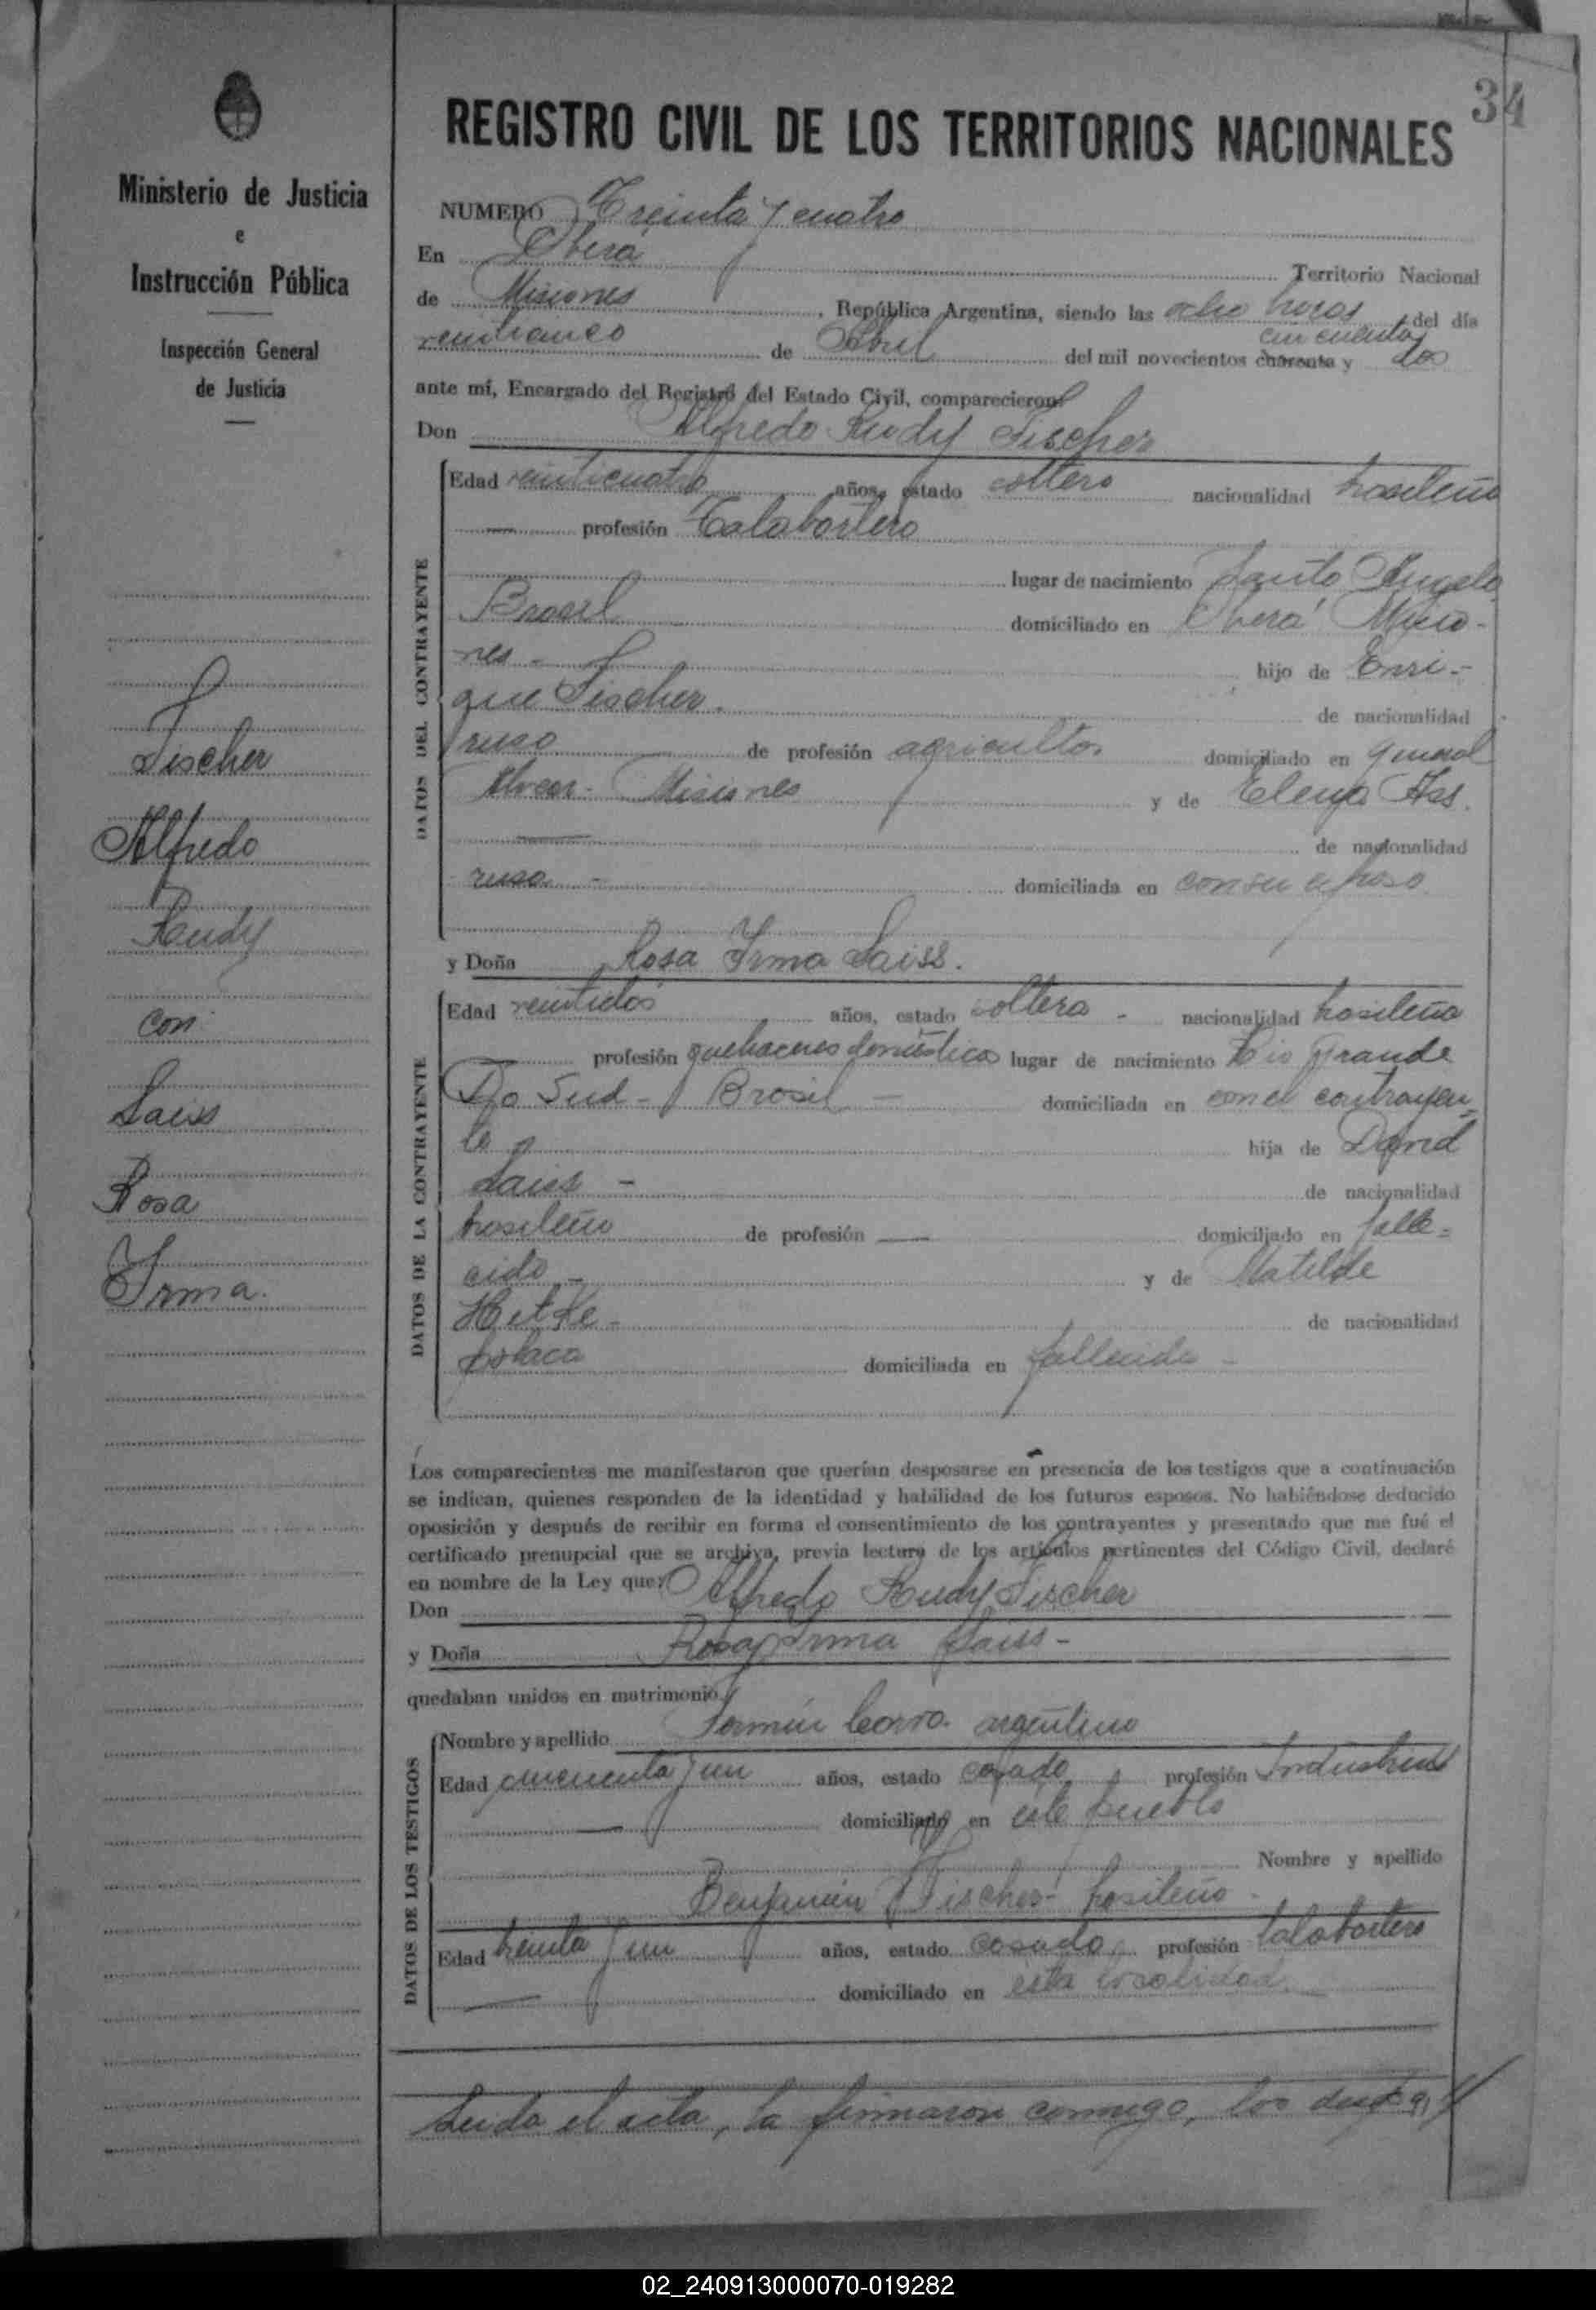 34
Ministerio de Justicia
e
Instrucción Pública
Inspección General
de Justicia
Fischer
Alfredo
Rudy
con
Laiss
Rosa
Irma.
REGISTRO CIVIL DE LOS TERRITORIOS NACIONALES
NUMERO Treinta y cuatro
En Oberá Territorio Nacional
de Misiones, República Argentina, siendo las ocho horas del día
veinticinco de Abril del mil novecientos cuarenta y cincuenta y dos
ante mí, Encargado del Registro del Estado Civil, comparecieron:
Don Alfredo Rudy Fischer
DATOS DEL CONTRAYENTE
Edad veinticuatro años, estado soltero nacionalidad brasileño
— profesión Talabartero
lugar de nacimiento Santo Angelo
Brasil domiciliado en Oberá Misio-
nes - hijo de Enri-
que Fischer. de nacionalidad
ruso de profesión agricultor domiciliado en General
Alvear - Misiones y de Elena
— de nacionalidad
rusa - domiciliada en con su esposo
y Doña Rosa Irma Laiss.
DATOS DE LA CONTRAYENTE
Edad veintidos años, estado soltera - nacionalidad brasileña
profesión quehaceres domésticos lugar de nacimiento Rio Grande
Do Sud - Brasil - domiciliada en con el contrayen-
te hija de David
Laiss - de nacionalidad
brasileño de profesión — domiciliado en falle-
cido - y de Matilde
Hetke - de nacionalidad
polaca domiciliada en fallecida -
Los comparecientes me manifestaron que querían desposarse en presencia de los testigos que a continuación
se indican, quienes responden de la identidad y habilidad de los futuros esposos. No habiéndose deducido
oposición y después de recibir en forma el consentimiento de los contrayentes y presentado que me fué el
certificado prenupcial que se archiva, previa lectura de los artículos pertinentes del Código Civil, declaré
en nombre de la Ley que:
Don Alfredo Rudy Fischer
y Doña Rosa Irma Laiss -
quedaban unidos en matrimonio.
DATOS DE LOS TESTIGOS
Nombre y apellido Fermín argentino
Edad cincuenta y un años, estado casado profesión Industrial
— domiciliado en este pueblo
Nombre y apellido
Benjamín Fischer - brasileño -
Edad treinta y un años, estado casado profesión talabartero
— domiciliado en esta localidad.
Leida el acta, la firmaron conmigo, los
02_240913000070-019282